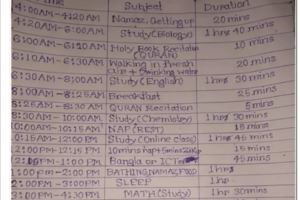 Subject Duration
4:00AM-4:20AM Namaz, Getting up 20 mins
4:20AM-6:00AM Study (Biology) 1hrs 40 mins
6:00AM-6:10AM Holy Book Recitation (QURAN) 10 mins
6:10AM-6:30AM Walking in fresh air + Drinking water 20 mins
6:30AM-8:00AM Study (English) 1hrs 30 mins
8:00AM-8:25AM Breakfast 25 mins
8:25AM-8:30AM QURAN Recitation 5 mins
8:30AM-10:00AM Study (Chemistry) 1hrs 30 mins
10:00AM-10:15AM NAP (REST) 15 mins
10:15AM-12:00PM Study (Online class) 1hr 45 mins
12:00PM-12:15PM 10mins nap+5mins 15 mins
12:15PM-1:00PM Bangla or ICT 45 mins
1:00pm-2:00PM BATHING, NAMAZ, FOOD 1hr
2:00PM-3:00PM SLEEP 1hr
3:00PM-4:30PM MATH (Study) 1hr 30mins